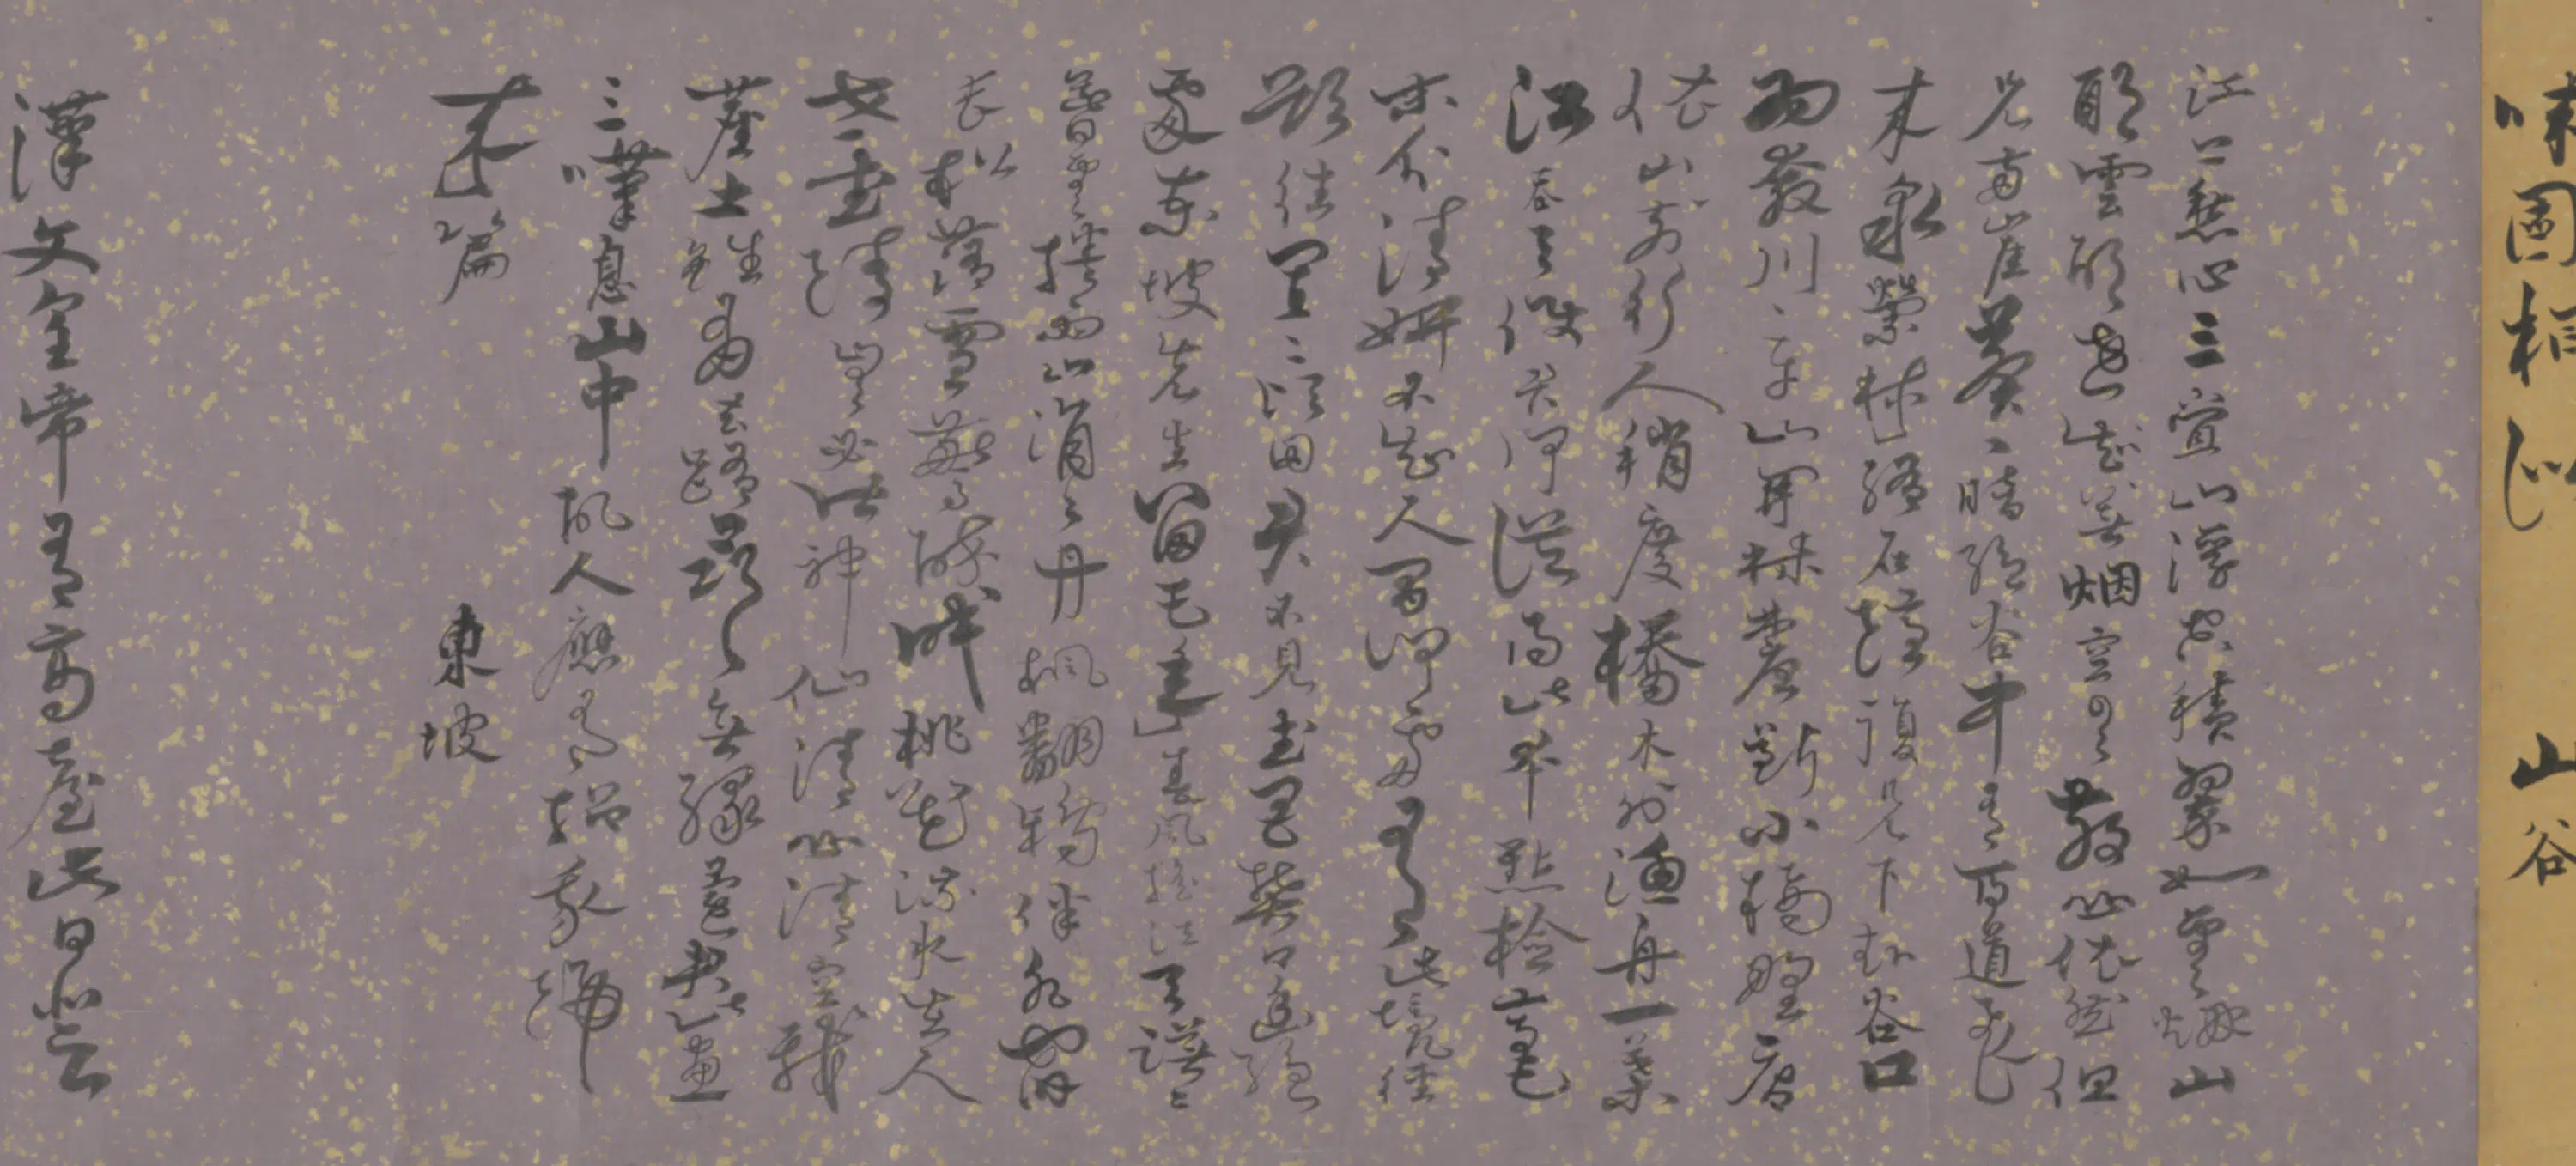 山谷
江上愁心三疊山浮空積翠如雲煙山
耶雲耶遠莫知烟空雲散山依然但
見兩崖蒼〻暗絕谷中有百道飛
来泉縈林絡石隱復見下赴谷口
為奔川〻平山開林麓斷小橋野店
依山前行人稍度橋木外漁舟一葉
江吞天使君何從得此本點檢毫
末分清妍不知人間何處有此境徑
欲往買二頃田君不見武昌樊口幽絕
處東坡先生留五年春風搖江天漠〻
暮雲捲雨山涓〻丹楓翻鴉伴水宿
長松落雪驚醉眠桃花流水在人
世武陵豈必皆神仙江山清空我
塵土雖有去路尋無緣還君此畫
三嘆息山中故人應有招我歸
来篇
東坡
漢文皇帝有高臺此日登